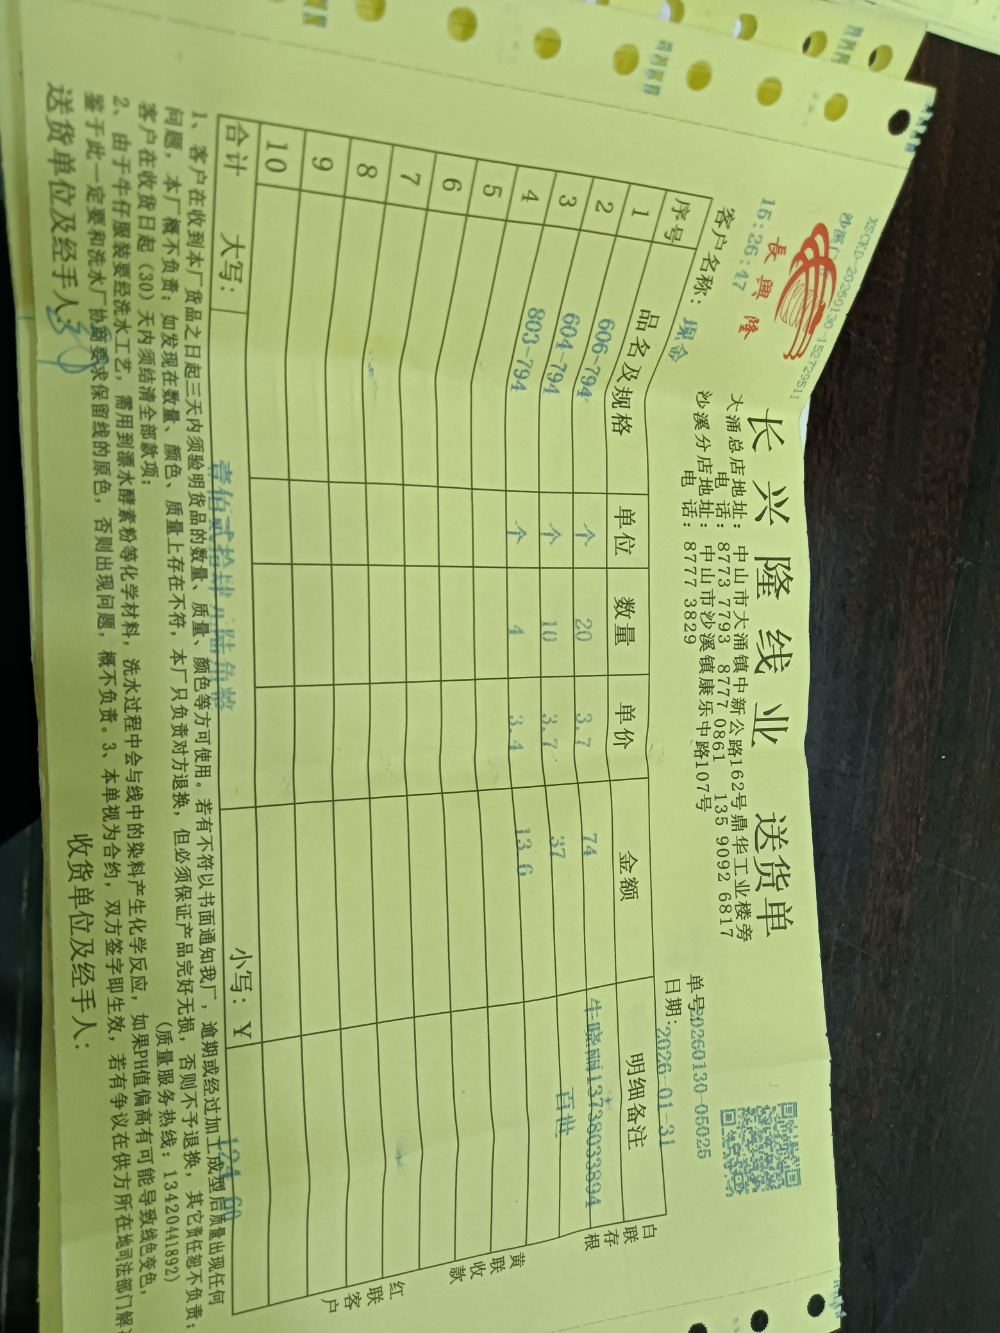 XSCKD-20260130-152729511
沙溪仁
16:26:47
長興隆
长兴隆线业 送货单
大涌总店地址: 中山市大涌镇中新公路162号鼎华工业楼旁
电话: 8773 7793 8777 0861 135 9092 6817
沙溪分店地址: 中山市沙溪镇康乐中路107号
电话: 8777 3829
单号:20260130-05025
客户名称: 现金
日期: 2026-01-31
序号 品名及规格 单位 数量 单价 金额 明细备注
1 606-794 个 20 3.7 74 牛晓丽13738033894
2 604-794 个 10 3.7 37 百世
3 803-794 个 4 3.4 13.6
4
5
6
7
8
9
10
合计 大写: 壹佰贰拾肆元陆角整 小写: ¥ 124.60
白联存根
黄联收款
红联客户
1、客户在收到本厂货品之日起三天内须验明货品的数量、质量、颜色等方可使用。若有不符以书面通知我厂,逾期或经过加工成型后质量出现任何
问题,本厂概不负责;如发现在数量、颜色、质量上存在不符,本厂只负责对方退换,但必须保证产品完好无损,否则不予退换,其它责任恕不负责;
客户在收货日起(30)天内须结清全部款项; (质量服务热线:13420441892)
2、由于牛仔服装要经洗水工艺,需用到漂水酵素粉等化学材料,洗水过程中会与线中的染料产生化学反应,如果PH值偏高有可能导致线色变色,
鉴于此一定要和洗水厂协商要求保留线的原色,否则出现问题,概不负责。3、本单视为合约,双方签字即生效,若有争议在供方所在地司法部门解
送货单位及经手人: 收货单位及经手人: